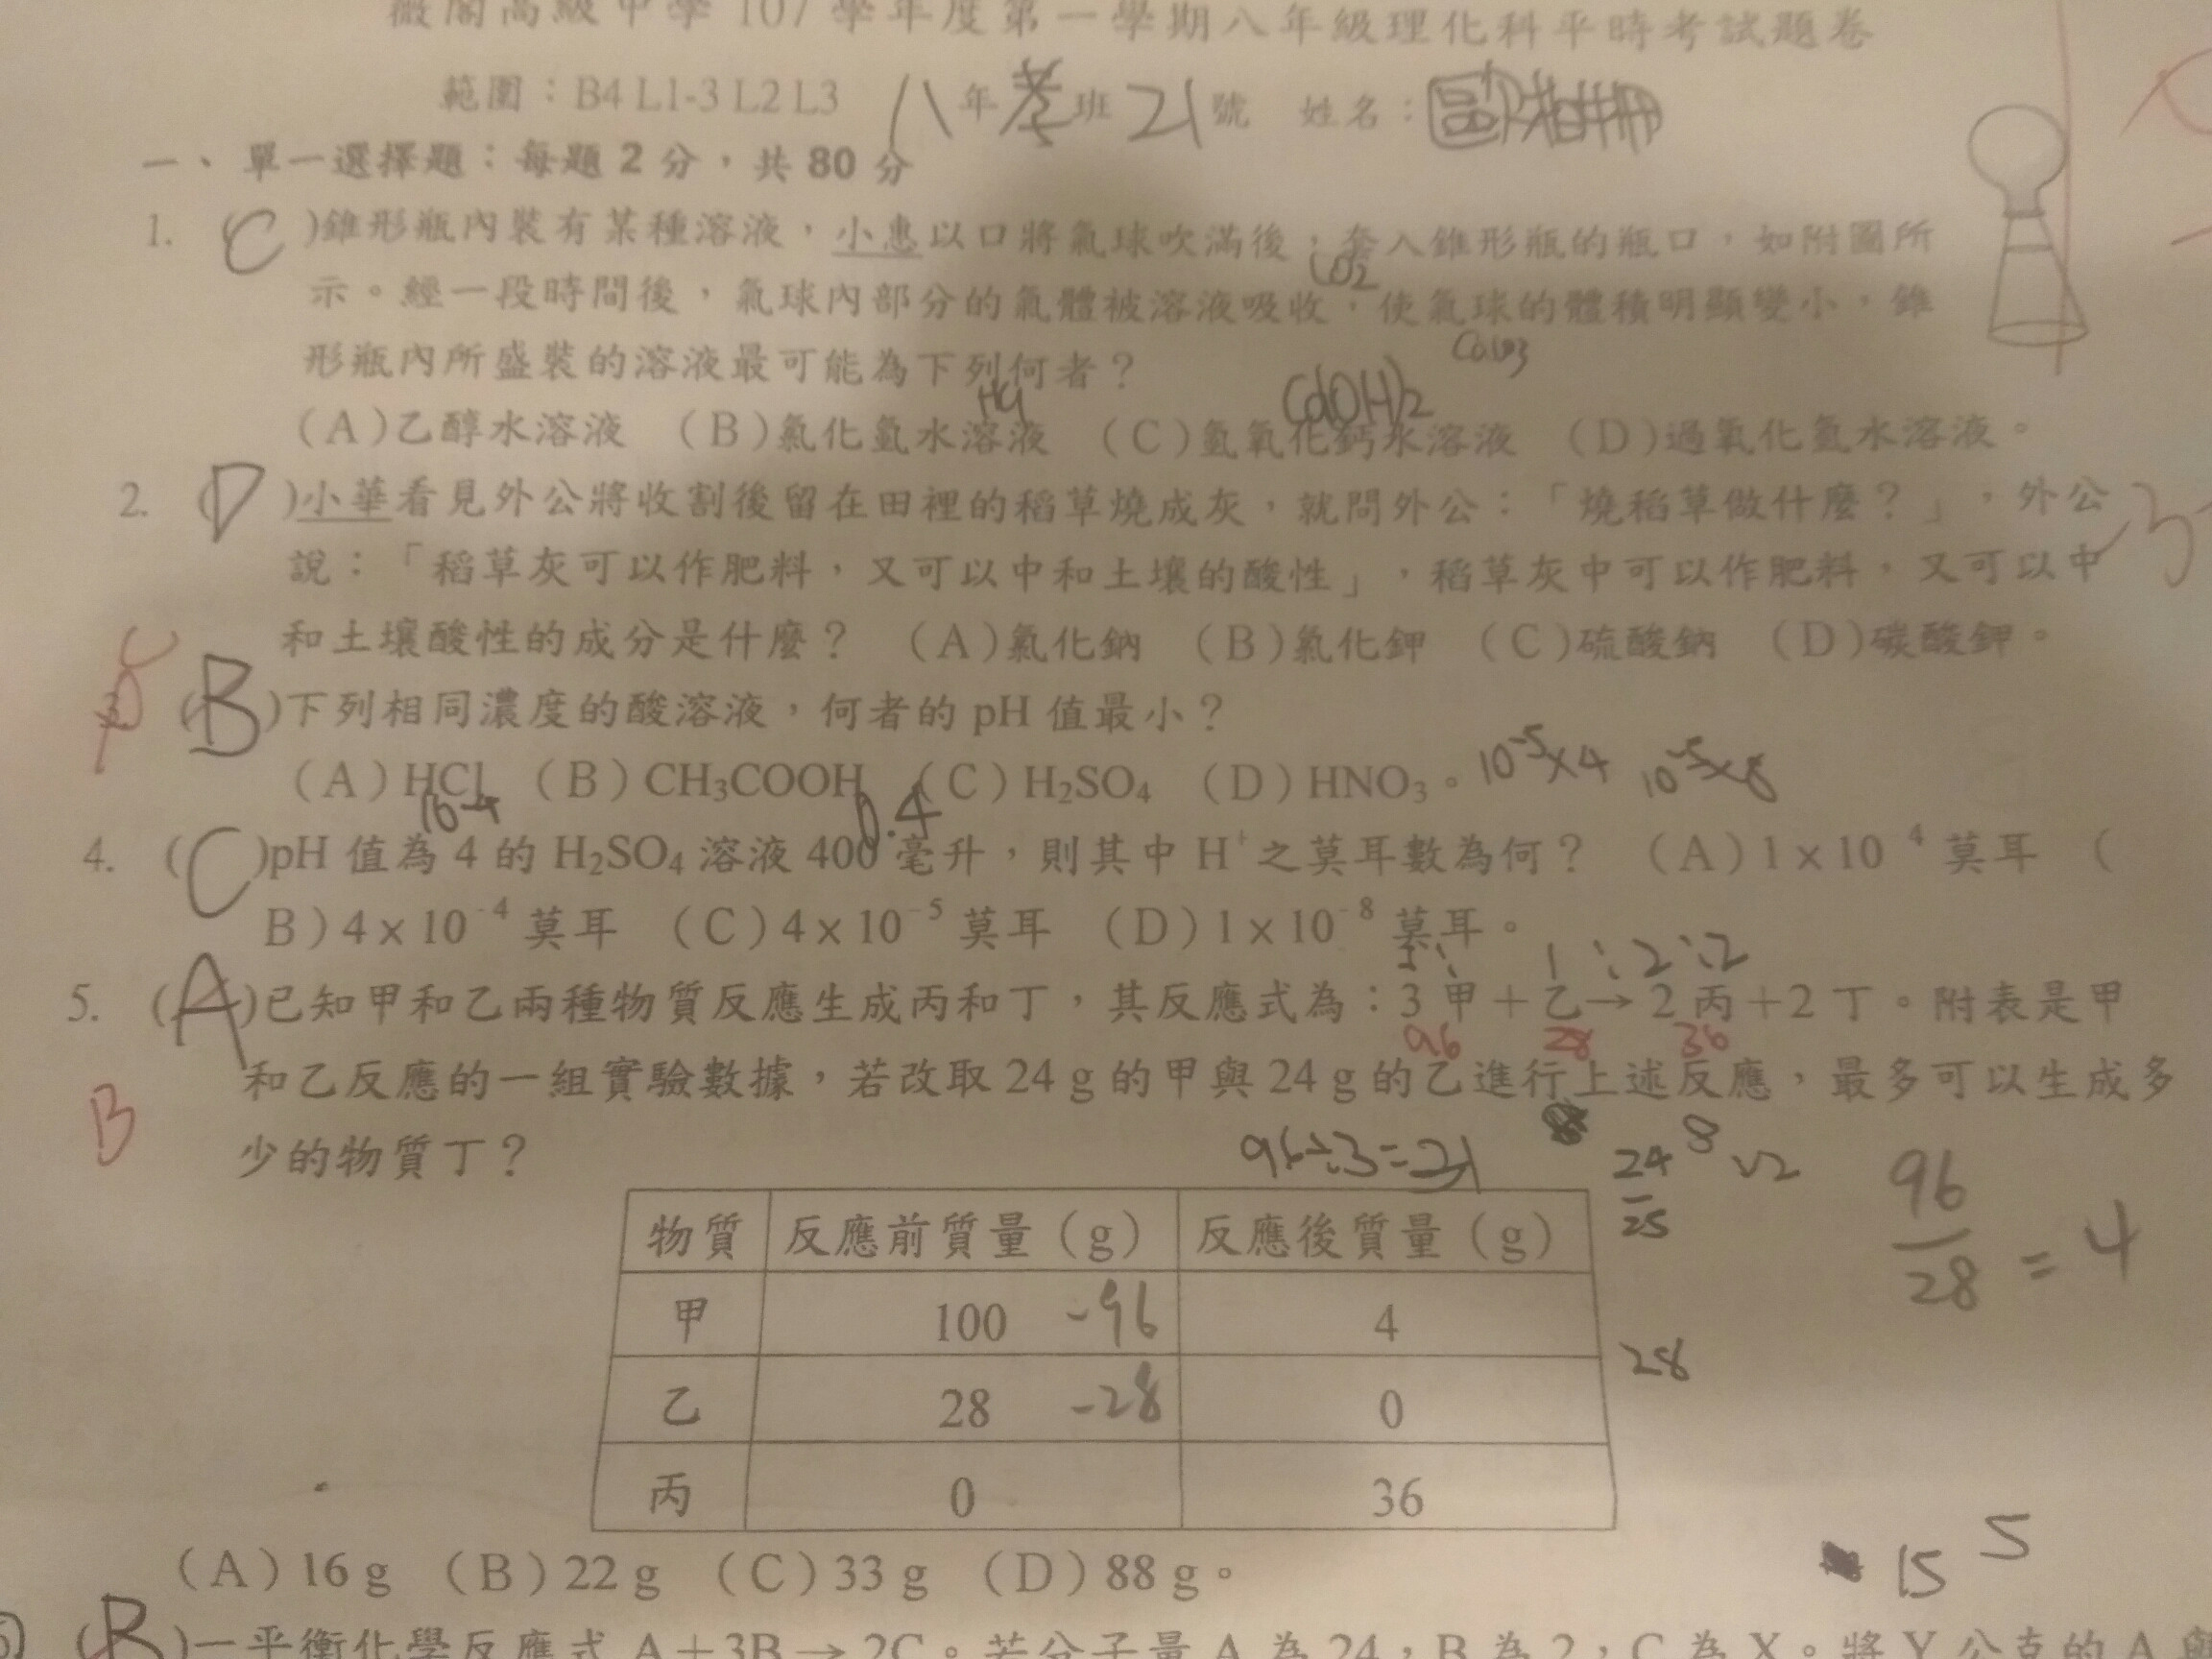 薇閣高級中學 107 學年度第一學期八年級理化科平時考試題卷
範圍：B4 L1-3 L2 L3 八年孝班 21 號 姓名：
一、單一選擇題：每題 2 分，共 80 分
1. (C)錐形瓶內裝有某種溶液，小惠以口將氣球吹滿後，套入錐形瓶的瓶口，如附圖所
CO2
示。經一段時間後，氣球內部分的氣體被溶液吸收，使氣球的體積明顯變小，錐
形瓶內所盛裝的溶液最可能為下列何者？
CaCO3
HCl Ca(OH)2
(A)乙醇水溶液 (B)氯化氫水溶液 (C)氫氧化鈣水溶液 (D)過氧化氫水溶液。
2. (D)小華看見外公將收割後留在田裡的稻草燒成灰，就問外公：「燒稻草做什麼？」，外公
說：「稻草灰可以作肥料，又可以中和土壤的酸性」，稻草灰中可以作肥料，又可以中
和土壤酸性的成分是什麼？ (A)氯化鈉 (B)氯化鉀 (C)硫酸鈉 (D)碳酸鉀。
C
3. (B)下列相同濃度的酸溶液，何者的 pH 值最小？
(A)HCl (B)CH₃COOH (C)H₂SO₄ (D)HNO₃。 10⁻⁵×4 10⁻⁵×8
10⁻⁴ 0.4
4. (C)pH 值為 4 的 H₂SO₄ 溶液 400 毫升，則其中 H⁺之莫耳數為何？ (A)1×10⁻⁴ 莫耳 (
B)4×10⁻⁴ 莫耳 (C)4×10⁻⁵ 莫耳 (D)1×10⁻⁸ 莫耳。
1:2:2
5. (A)已知甲和乙兩種物質反應生成丙和丁，其反應式為：3 甲＋乙→2 丙＋2 丁。附表是甲
96 28 36
和乙反應的一組實驗數據，若改取 24 g 的甲與 24 g 的乙進行上述反應，最多可以生成多
B
少的物質丁？
物質 反應前質量（g） 反應後質量（g）
甲 100 -96 4
乙 28 -28 0
丙 0 36
96/28 = 4
28
(A)16 g (B)22 g (C)33 g (D)88 g。
15 5
(B)一平衡化學反應式 A＋3B→2C。若分子量 A 為 24，B 為 2，C 為 X。將 Y 公克的 A 與